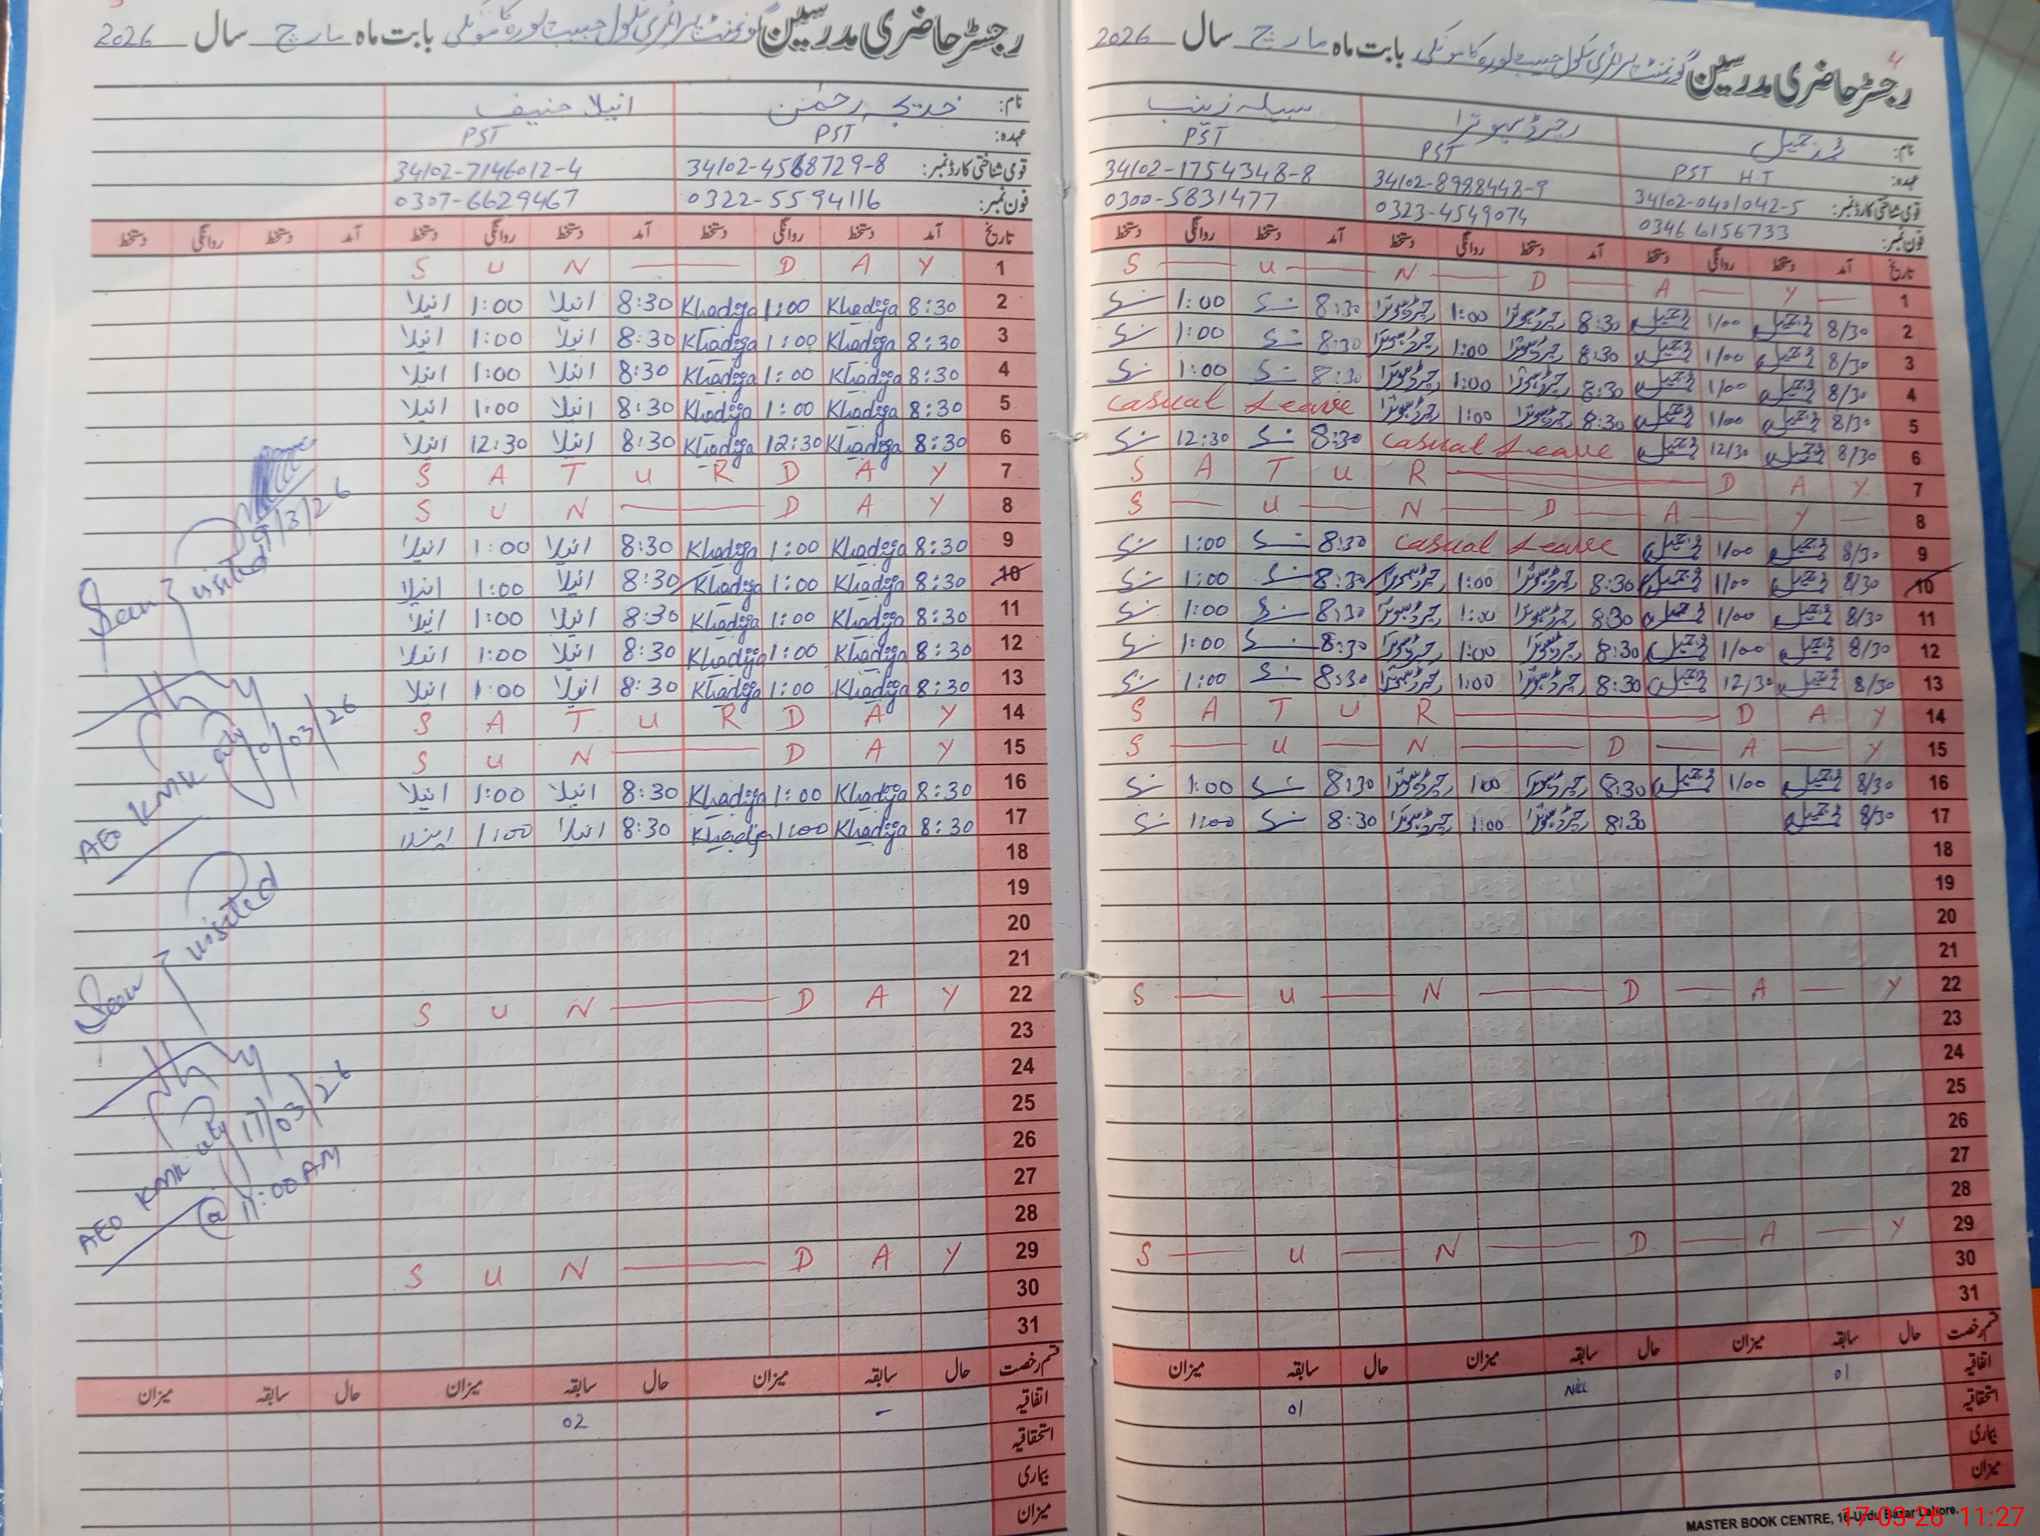 رجسٹر حاضری مدرسین گورنمنٹ پرائمری سکول حبیب پورہ کامونکی بابت ماہ مارچ سال 2026
4
نام:
عہدہ: PST HT PST PST
قومی شناختی کارڈ نمبر: 34102-0401042-5 34102-8988448-9 34102-1754348-8
فون نمبر: 0346 6156733 0323-4549074 0300-5831477
تاریخ آمد دستخط روانگی دستخط آمد دستخط روانگی دستخط آمد دستخط روانگی دستخط
1 S U N D A Y
2 8/30 1/00 8:30 1:00 8:30 1:00
3 8/30 1/00 8:30 1:00 8:30 1:00
4 8/30 1/00 8:30 1:00 8:30 1:00
5 8/30 1/00 8:30 1:00 Casual Leave
6 8/30 12/30 Casual Leave 8:30 12:30
7 S A T U R D A Y
8 S U N D A Y
9 8/30 1/00 Casual Leave 8:30 1:00
10 8/30 1/00 8:30 1:00 8:30 1:00
11 8/30 1/00 8:30 1:00 8:30 1:00
12 8/30 1/00 8:30 1:00 8:30 1:00
13 8/30 12/30 8:30 1:00 8:30 1:00
14 S A T U R D A Y
15 S U N D A Y
16 8/30 1/00 8:30 1:00 8:30 1:00
17 8/30 8:30 1:00 8:30 1:00
18
19
20
21
22 S U N D A Y
23
24
25
26
27
28
29 S U N D A Y
30
31
قسم رخصت حال سابقہ میزان حال سابقہ میزان حال سابقہ میزان
اتفاقیہ 01 Nil 01
استحقاقیہ
بیماری
میزان
MASTER BOOK CENTRE, 16-Urdu Bazar Lahore.
17-03-26 11:27
رجسٹر حاضری مدرسین گورنمنٹ پرائمری سکول حبیب پورہ کامونکی بابت ماہ مارچ سال 2026
نام: خدیجہ رحمٰن انیلا حنیف
عہدہ: PST PST
قومی شناختی کارڈ نمبر: 34102-4568729-8 34102-7146012-4
فون نمبر: 0322-5594116 0307-6629467
تاریخ آمد دستخط روانگی دستخط آمد دستخط روانگی دستخط آمد دستخط روانگی دستخط
1 S U N D A Y
2 8:30 Khadija 1:00 Khadija 8:30 انیلا 1:00 انیلا
3 8:30 Khadija 1:00 Khadija 8:30 انیلا 1:00 انیلا
4 8:30 Khadija 1:00 Khadija 8:30 انیلا 1:00 انیلا
5 8:30 Khadija 1:00 Khadija 8:30 انیلا 1:00 انیلا
6 8:30 Khadija 12:30 Khadija 8:30 انیلا 12:30 انیلا
7 S A T U R D A Y
8 S U N D A Y
9 8:30 Khadija 1:00 Khadija 8:30 انیلا 1:00 انیلا
10 8:30 Khadija 1:00 Khadija 8:30 انیلا 1:00 انیلا
11 8:30 Khadija 1:00 Khadija 8:30 انیلا 1:00 انیلا
12 8:30 Khadija 1:00 Khadija 8:30 انیلا 1:00 انیلا
13 8:30 Khadija 1:00 Khadija 8:30 انیلا 1:00 انیلا
14 S A T U R D A Y
15 S U N D A Y
16 8:30 Khadija 1:00 Khadija 8:30 انیلا 1:00 انیلا
17 8:30 Khadija 1:00 Khadija 8:30 انیلا 1:00 انیلا
18
19
20
21
22 S U N D A Y
23
24
25
26
27
28
29 S U N D A Y
30
31
قسم رخصت حال سابقہ میزان حال سابقہ میزان حال سابقہ میزان
اتفاقیہ - 02
استحقاقیہ
بیماری
میزان
9/3/26
Seen visited
AEO KMK city 10/03/26
Seen visited
AEO KMK city 17/03/26
@ 11:00 AM